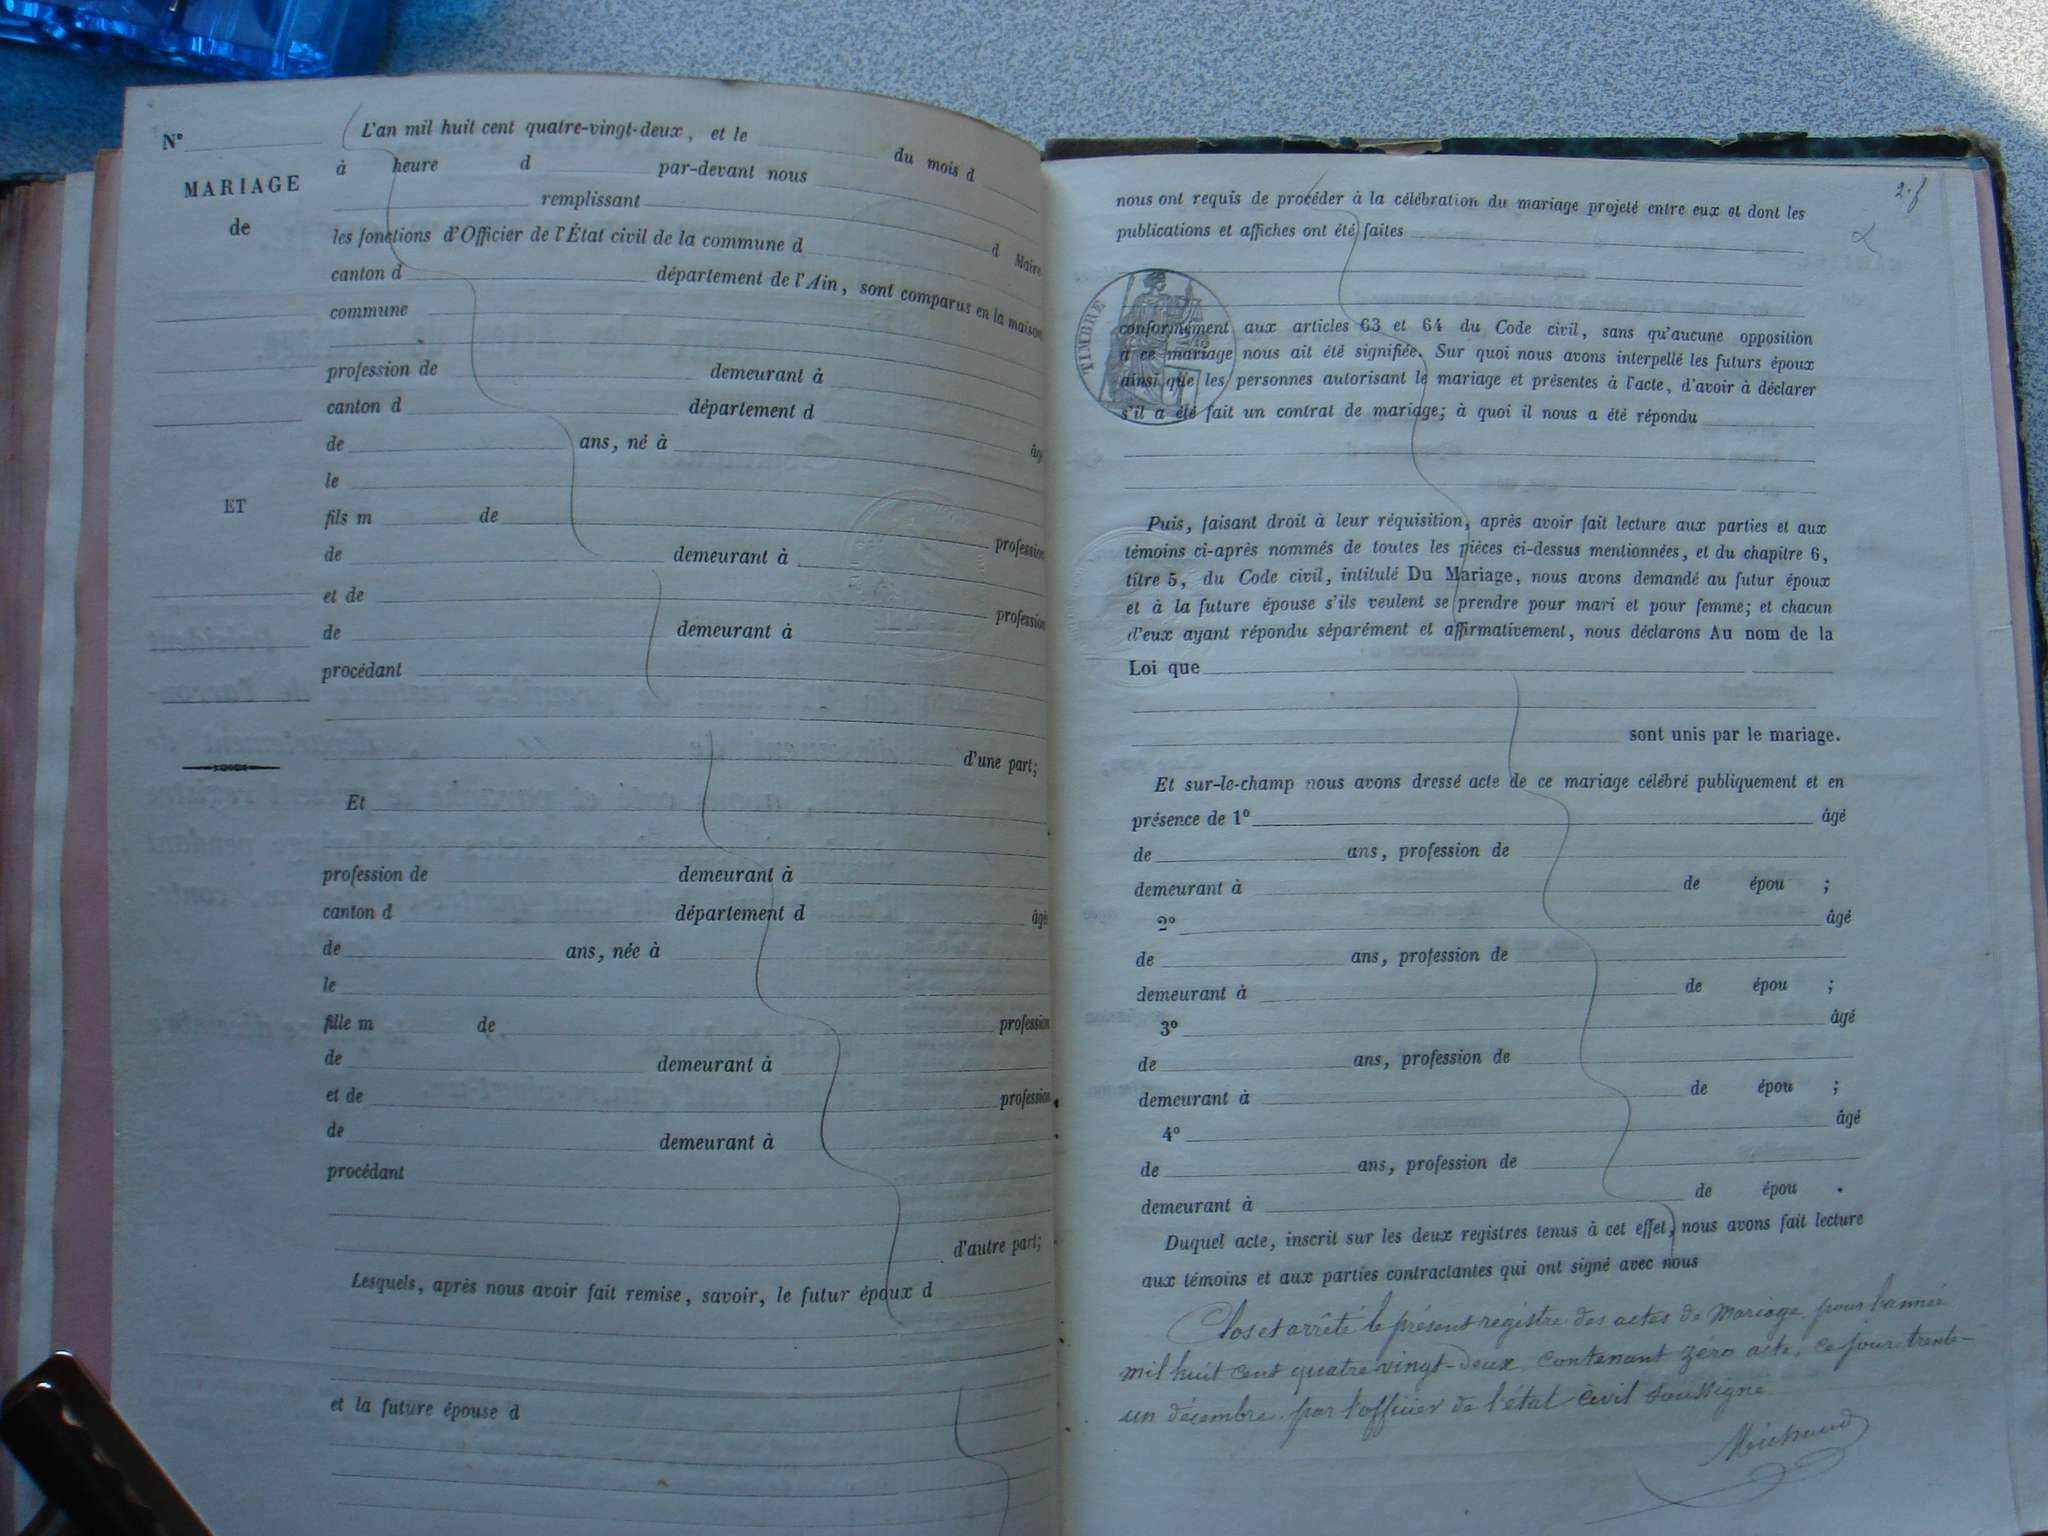 N°
MARIAGE
de
ET
L'an mil huit cent quatre-vingt-deux, et le du mois d
à heure d par-devant nous
remplissant
les fonctions d'Officier de l'État civil de la commune d d Maire
canton d département de l'Ain, sont comparus en la maison
commune
profession de demeurant à
canton d département d
de ans, né à âgé
le
fils m de profession
de demeurant à
et de profession
de demeurant à
procédant
d'une part;
Et
profession de demeurant à
canton d département d âgé
de ans, née à
le
fille m de profession
de demeurant à
et de profession
de demeurant à
procédant
d'autre part;
Lesquels, après nous avoir fait remise, savoir, le futur époux d
et la future épouse d
nous ont requis de procéder à la célébration du mariage projeté entre eux et dont les
publications et affiches ont été faites
TIMBRE
conformément aux articles 63 et 64 du Code civil, sans qu'aucune opposition
à ce mariage nous ait été signifiée. Sur quoi nous avons interpellé les futurs époux
ainsi que les personnes autorisant le mariage et présentes à l'acte, d'avoir à déclarer
s'il a été fait un contrat de mariage; à quoi il nous a été répondu
Puis, faisant droit à leur réquisition, après avoir fait lecture aux parties et aux
témoins ci-après nommés de toutes les pièces ci-dessus mentionnées, et du chapitre 6,
titre 5, du Code civil, intitulé Du Mariage, nous avons demandé au futur époux
et à la future épouse s'ils veulent se prendre pour mari et pour femme; et chacun
d'eux ayant répondu séparément et affirmativement, nous déclarons Au nom de la
Loi que
sont unis par le mariage.
Et sur-le-champ nous avons dressé acte de ce mariage célébré publiquement et en
présence de 1° âgé
de ans, profession de
demeurant à de épou ;
2° âgé
de ans, profession de
demeurant à de épou ;
3° âgé
de ans, profession de
demeurant à de épou ;
4° âgé
de ans, profession de
demeurant à de épou .
Duquel acte, inscrit sur les deux registres tenus à cet effet, nous avons fait lecture
aux témoins et aux parties contractantes qui ont signé avec nous
Clos et arrêté le présent registre des actes de Mariage pour l'année
mil huit cent quatre vingt-deux, contenant zéro acte, ce jour trente-
un décembre, par l'officier de l'état-civil soussigné
Michaud